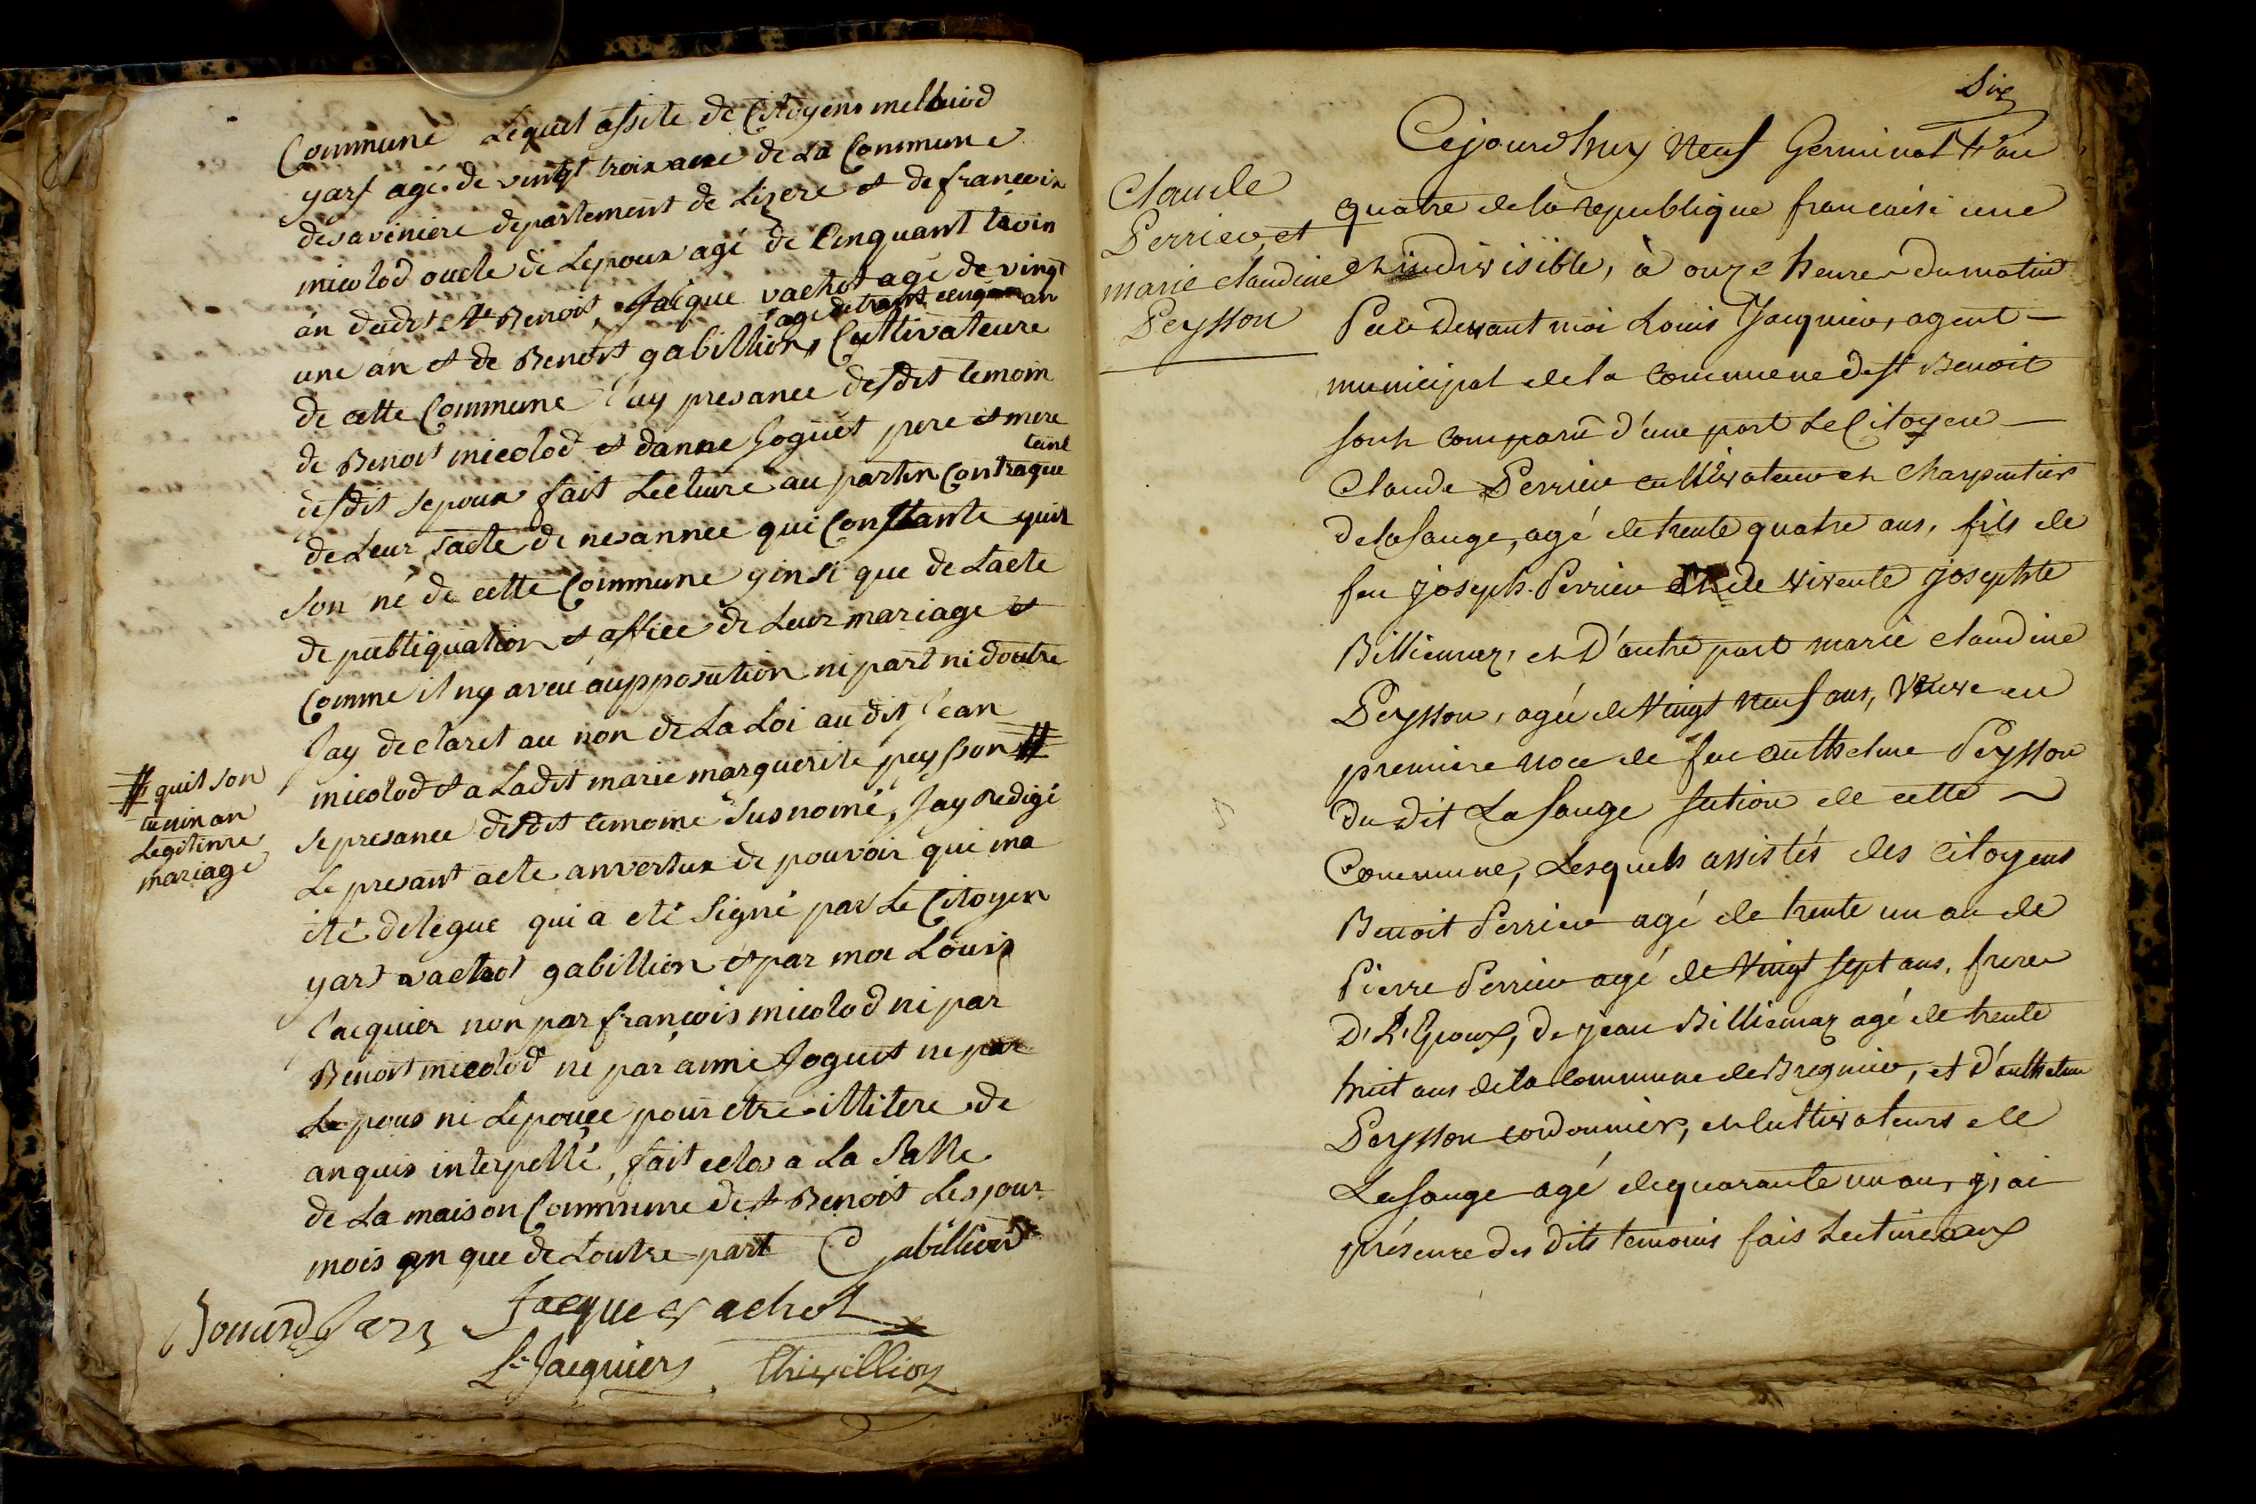 Commune Lequel assite de Citoyens melchiod
yars agé de vingt trois ans de La Commune
des avenière departement de Lizere et de francois
micolod oncle de Lepoux agé de Cinquant trois
an dudit St Benoit, Jacque vachot agé de vingt
agé de trant cinq an
une an et de Benoit gabillion, Cultivateure
de cette Commune Jay presance desdit temoin
de Benoit micolod et danne Goguet pere et mere
desdit Sepoux fait Lecture au partin Contraque
tant
de Leur Jacte de nesannee qui Constante quil
son né de cette Commune ynsi que de Lacte
de publiquation et affice de Leur mariage et
Comme il ny a veü aupposution ni part ni doutre
Jay declaret au non de La Loi au dit Jean
micolod et a Ladit marie marguerite peysson #
# quil son
unin an
Legitime
mariage
Se presance desdit temoins Susnomé, Jay Redigé
Le presant acte anvertux de pouvoir qui ma
ité delegue qui a eté Signé par Le Citoyen
yars vachot gabillion et par moi Louis
Jacquier non par francois micolod ni par
Benoit micolod ni par anne Goguet ni par
Lepous ni Lepouce pour etre illitere de
anquis interpellé, fait celos a La Salle
de La maison Commune de St Benoit Les jour
mois an que de Loutre part C gabillion
Jacque vachot
L. Jacquier Chevillion
Six
Claude
Perrier, et
marie claudine
Peysson
Cejourdhuy Neuf Germinal l'an
quatre de la republique francaise une
et indivisible, à onze heures du matin
Par devant moi Louis Jacquier, agent —
municipal de la commune de St Benoit
sont comparü d'une part Le Citoyen —
Claude Perrier cultivateur et charpentier
de laSauge, agé de trente quatre ans, fils de
feu joseph Perrier et de vivente josephte
Billiemaz, et D'autre part marie claudine
Peysson, agée de Vingt neuf ans, Veuve en
premiere noce de feu anthelme Peysson
du dit La Sauge Sution de cette ~
Commune, Lesquels assistés des citoyens
Benoit Perrier agé de trente un an de
Pierre Perrier agé de Vingt sept ans, freres
D. L'Epoux, de jean Billiemaz agé de trente
huit ans de la commune de Bregnier, et d'anthelme
Peysson cordonnier, et Cultivateurs de
La Sauge agé de quarante un an, j, ai
présence des dits temoins fais Lecture aux